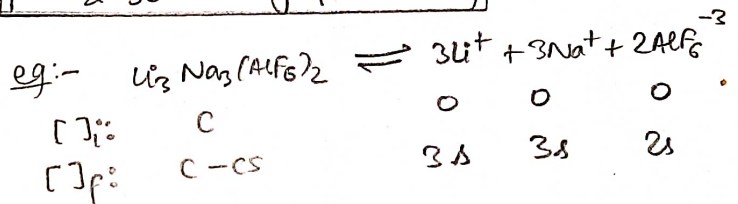 eg:- Li3 Na3(AlF6)2 ⇌ 3Li+ + 3Na+ + 2AlF6-3
[ ]i: C 0 0 0
[ ]f: C-cs 3s 3s 2s